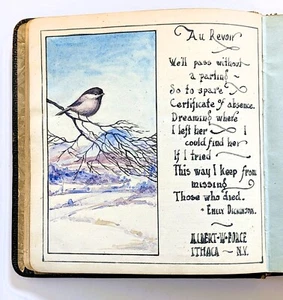 Au Revoir
We'll pass without
a parting
So to spare
Certificate of absence.
Dreaming where
I left her I
could find her
If I tried
This way I keep from
missing
Those who died.
- Emily Dickinson.
ALBERT W. FORCE
ITHACA - N.Y.